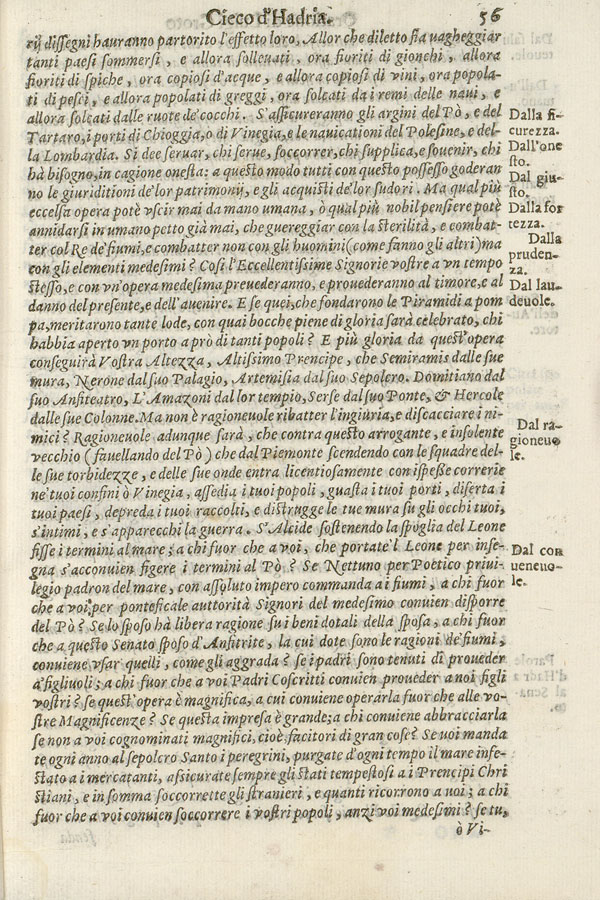 Cieco d'Hadria. 56
rij dissegni hauranno partorito l'effetto loro, Allor che diletto fia uagheggiar
tanti paesi sommersi, e allora solleuati, ora fioriti di gionchi, allora
fioriti di spiche, ora copiosi d'acque, e allora copiosi di vini, ora popola-
ti di pesci, e allora popolati di greggi, ora solcati da i remi delle naui, e
allora solcati dalle ruote de' cocchi. S'assicureranno gli argini del Pò, e del
Tartaro, i porti di Chioggia, o di Vinegia, e le nauicationi del Polesine, e del-
la Lombardia. Si dee seruar, chi serue, soccorrer, chi supplica, e souenir, chi
hà bisogno, in cagione onesta: a questo modo tutti con questo possesso goderan
no le giuriditioni de'lor patrimonij, e gli acquisti de'lor sudori. Ma qual più
eccelsa opera potè vscir mai da mano umana, ò qual più nobil pensiere potè
annidarsi in umano petto già mai, che guereggiar con la sterilità, e combat-
ter col Re de'fiumi, e combatter non con gli huomini (come fanno gli altri) ma
con gli elementi medesimi? Così l'Eccellentissime Signorie vostre a vn tempo
stesso, e con vn'opera medesima preuederanno, e prouederanno al timore, e al
danno del presente, e dell'auenire. E se quei, che fondarono le Piramidi a pom
pa, meritarono tante lode, con quai bocche piene di gloria sarà celebrato, chi
habbia aperto vn porto a prò di tanti popoli? E più gloria da quest'opera
conseguirà Vostra Altezza, Altissimo Prencipe, che Semiramis dalle sue
mura, Nerone dal suo Palagio, Artemisia dal suo Sepolcro. Domitiano dal
suo Anfiteatro, L'Amazoni dal lor tempio, Serse dal suo Ponte, & Hercole
dalle sue Colonne. Ma non è ragioneuole ribatter l'ingiuria, e discacciare i ni-
mici? Ragioneuole adunque sarà, che contra questo arrogante, e insolente
vecchio (fauellando del Pò) che dal Piemonte scendendo con le squadre del-
le sue torbidezze, e delle sue onde entra licentiosamente con ispesse correrie
ne'tuoi confini ò Vinegia, assedia i tuoi popoli, guasta i tuoi porti, diserta i
tuoi paesi, depreda i tuoi raccolti, e distrugge le tue mura su gli occhi tuoi,
s'intimi, e s'apparecchi la guerra. S'Alcide sostenendo la spoglia del Leone
fisse i termini al mare; a chi fuor che a voi, che portate'l Leone per inse-
gna s'acconuien figere i termini al Pò? Se Nettuno per Poetico priui-
legio padron del mare, con assoluto impero commanda a i fiumi, a chi fuor
che a voi, per ponteficale auttorità Signori del medesimo conuien disporre
del Pò? Se lo sposo hà libera ragione su i beni dotali della sposa, a chi fuor
che a questo Senato sposo d'Anfitrite, la cui dote sono le ragioni de'fiumi,
conuiene vsar quelli, come gli aggrada? se i padri sono tenuti di proueder
a'figliuoli; a chi fuor che a voi Padri Coscritti conuien proueder a noi figli
vostri? se quest'opera è magnifica, a cui conuiene operarla fuor che alle vo-
stre Magnificenze? Se questa impresa è grande; a chi conuiene abbracciarla
se non a voi cognominati magnifici, cioè facitori di gran cose? Se uoi manda
te ogni anno al sepolcro Santo i peregrini, purgate d'ogni tempo il mare infe-
stato a i mercatanti, assicurate sempre gli stati tempestosi a i Prencipi Chri
stiani, e in somma soccorrette gli stranieri, e quanti ricorrono a noi; a chi
fuor che a voi conuien soccorrere i vostri popoli, anzi voi medesimi? se tu,
ò Vi-
Dalla si-
curezza.
Dall'one
sto.
Dal giu-
sto.
Dalla for
tezza.
Dalla
pruden-
za.
Dal lau-
deuole.
Dal ra-
gioneuo
le.
Dal con
ueneuo-
le.